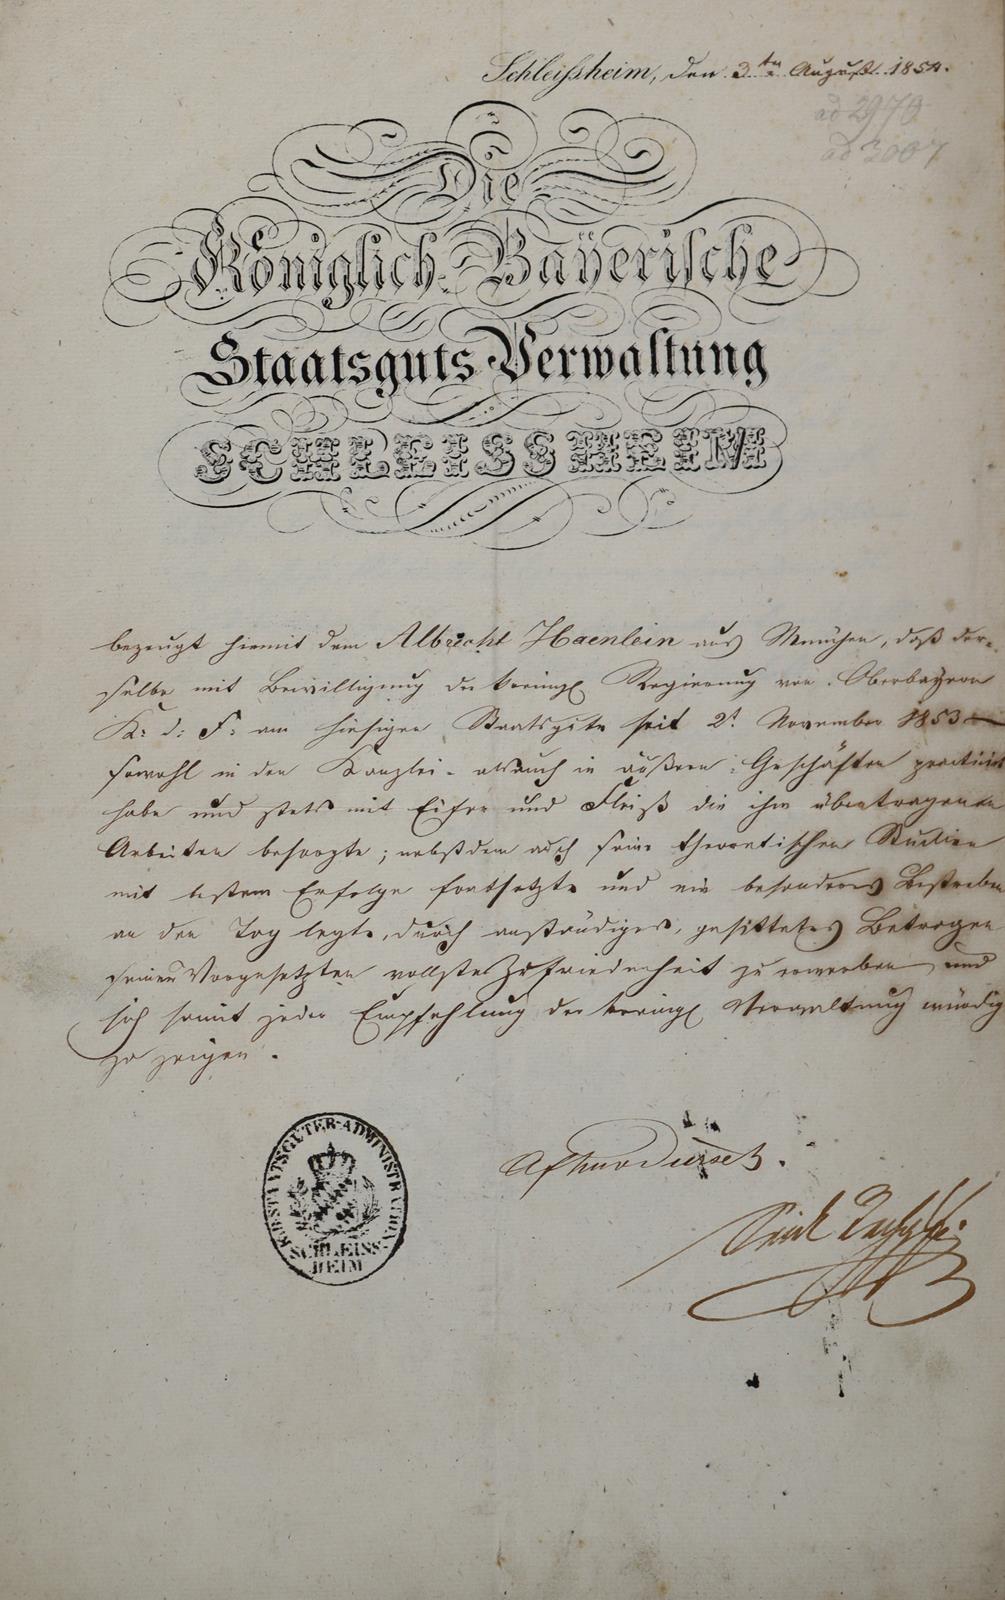 Schleißheim, den 3ten August 1854.
ad 2970
ad 3007
Die
Königlich Bayerische
Staatsguts Verwaltung
SCHLEISSHEIM
bezeugt hiemit dem Albrecht Haenlein aus München, daß der-
selbe mit Bewilligung der königl Regierung von Oberbayern
K: d: F: am hiesigen Staatsgute seit 2t November 1853
sowohl in der Kanzlei- als auch in äußern Geschäften practicirt
habe und stets mit Eifer und Fleiß die ihm übertragenen
Arbeiten besorgte; nebstdem auch seine theoretischen Studien
mit bestem Erfolge fortsetzte und ein besonderes Bestreben
an den Tag legte, durch anständiges, gesittetes Betragen
seiner Vorgesetzten vollste Zufriedenheit zu erwerben und
sich somit jeder Empfehlung der königl Verwaltung würdig
zu zeigen.
K.B.STAATSGÜTER-ADMINISTRATION
SCHLEISS-
HEIM